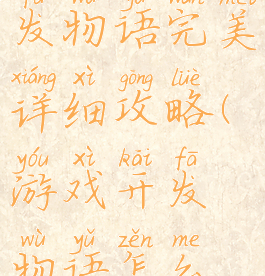 fā wù yǔ wán měi
发物语完美
xiáng xì gōng lüè
详细攻略(
yóu xì kāi fā
游戏开发
wù yǔ zěn me
物语怎么